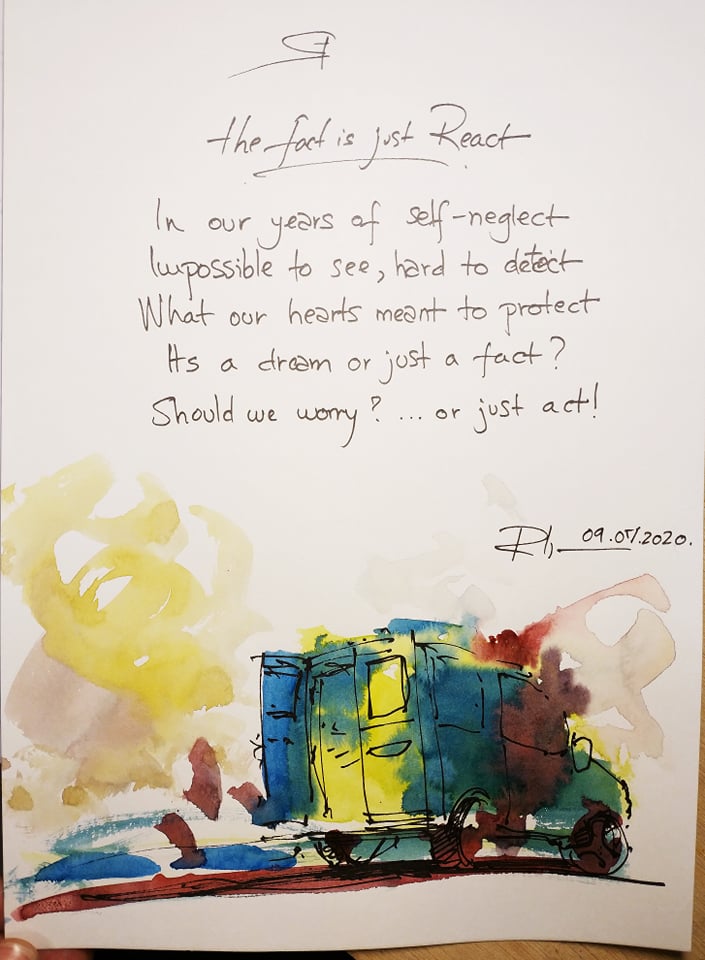 the fact is just React
In our years of self-neglect
Impossible to see, hard to detect
What our hearts meant to protect
Its a dream or just a fact?
Should we worry? ... or just act!
09.05.2020.